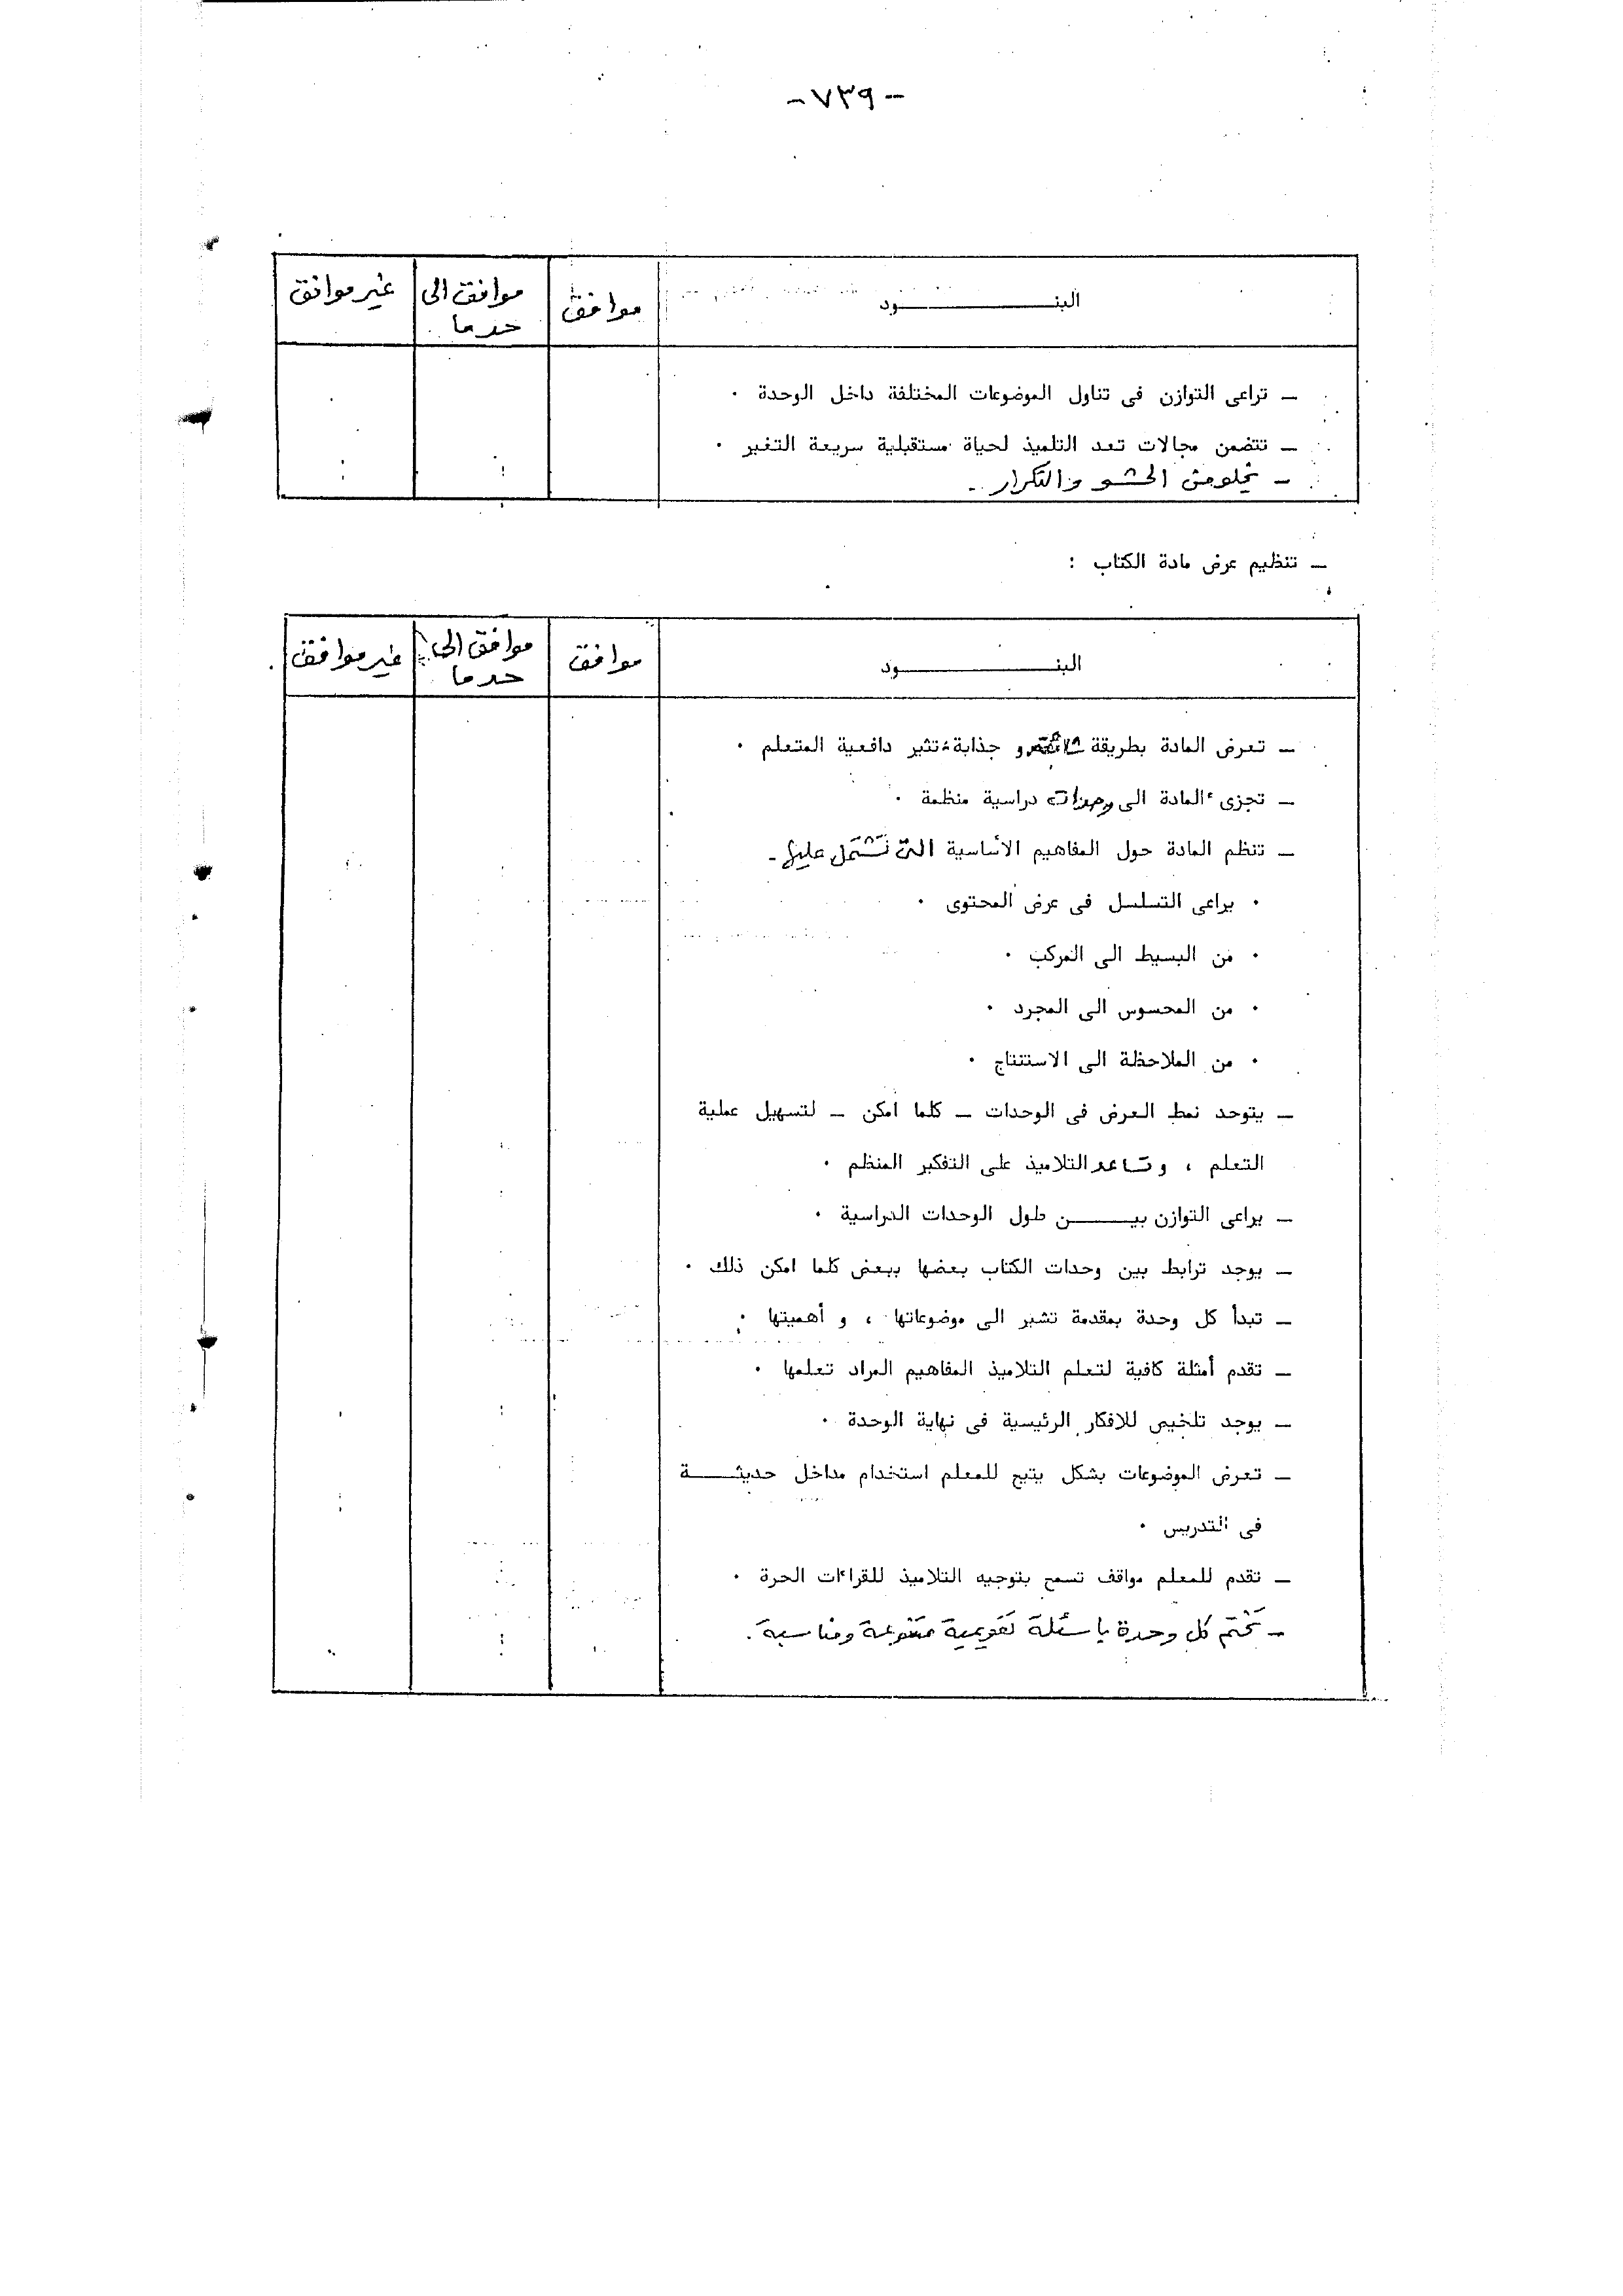 -٧٣٩-
البنــــــــود	موافق	موافق الى	غير موافق
حد ما
ــ تراعى التوازن فى تناول الموضوعات المختلفة داخل الوحدة ٠
ــ تتضمن مجالات تعد التلميذ لحياة مستقبلية سريعة التغير ٠
- تخلو من الحشو والتكرار -
ــ تنظيم عرض مادة الكتاب :
البنــــــــود	موافق	موافق الى	غير موافق
حد ما
ــ تعرض المادة بطريقة شائقة و جذابة، تثير دافعية المتعلم ٠
ــ تجزىء المادة الى وحدات دراسية منظمة ٠
ــ تنظم المادة حول المفاهيم الأساسية التى تشتمل عليها -
٠ يراعى التسلسل فى عرض المحتوى ٠
٠ من البسيط الى المركب ٠
٠ من المحسوس الى المجرد ٠
٠ من الملاحظة الى الاستنتاج ٠
ــ يتوحد نمط العرض فى الوحدات ــ كلما امكن ــ لتسهيل عملية
التعلم ، وتساعد التلاميذ على التفكير المنظم ٠
ــ يراعى التوازن بيـــــن طول الوحدات الدراسية ٠
ــ يوجد ترابط بين وحدات الكتاب بعضها ببعض كلما امكن ذلك ٠
ــ تبدأ كل وحدة بمقدمة تشير الى موضوعاتها ، و أهميتها ٠
ــ تقدم أمثلة كافية لتعلم التلاميذ المفاهيم المراد تعلمها ٠
ــ يوجد تلخيص للافكار الرئيسية فى نهاية الوحدة ٠
ــ تعرض الموضوعات بشكل يتيح للمعلم استخدام مداخل حديثـــــة
فى التدريس ٠
ــ تقدم للمعلم مواقف تسمح بتوجيه التلاميذ للقراءات الحرة ٠
- تختم كل وحدة بأسئلة تقويمية متنوعة ومناسبة .